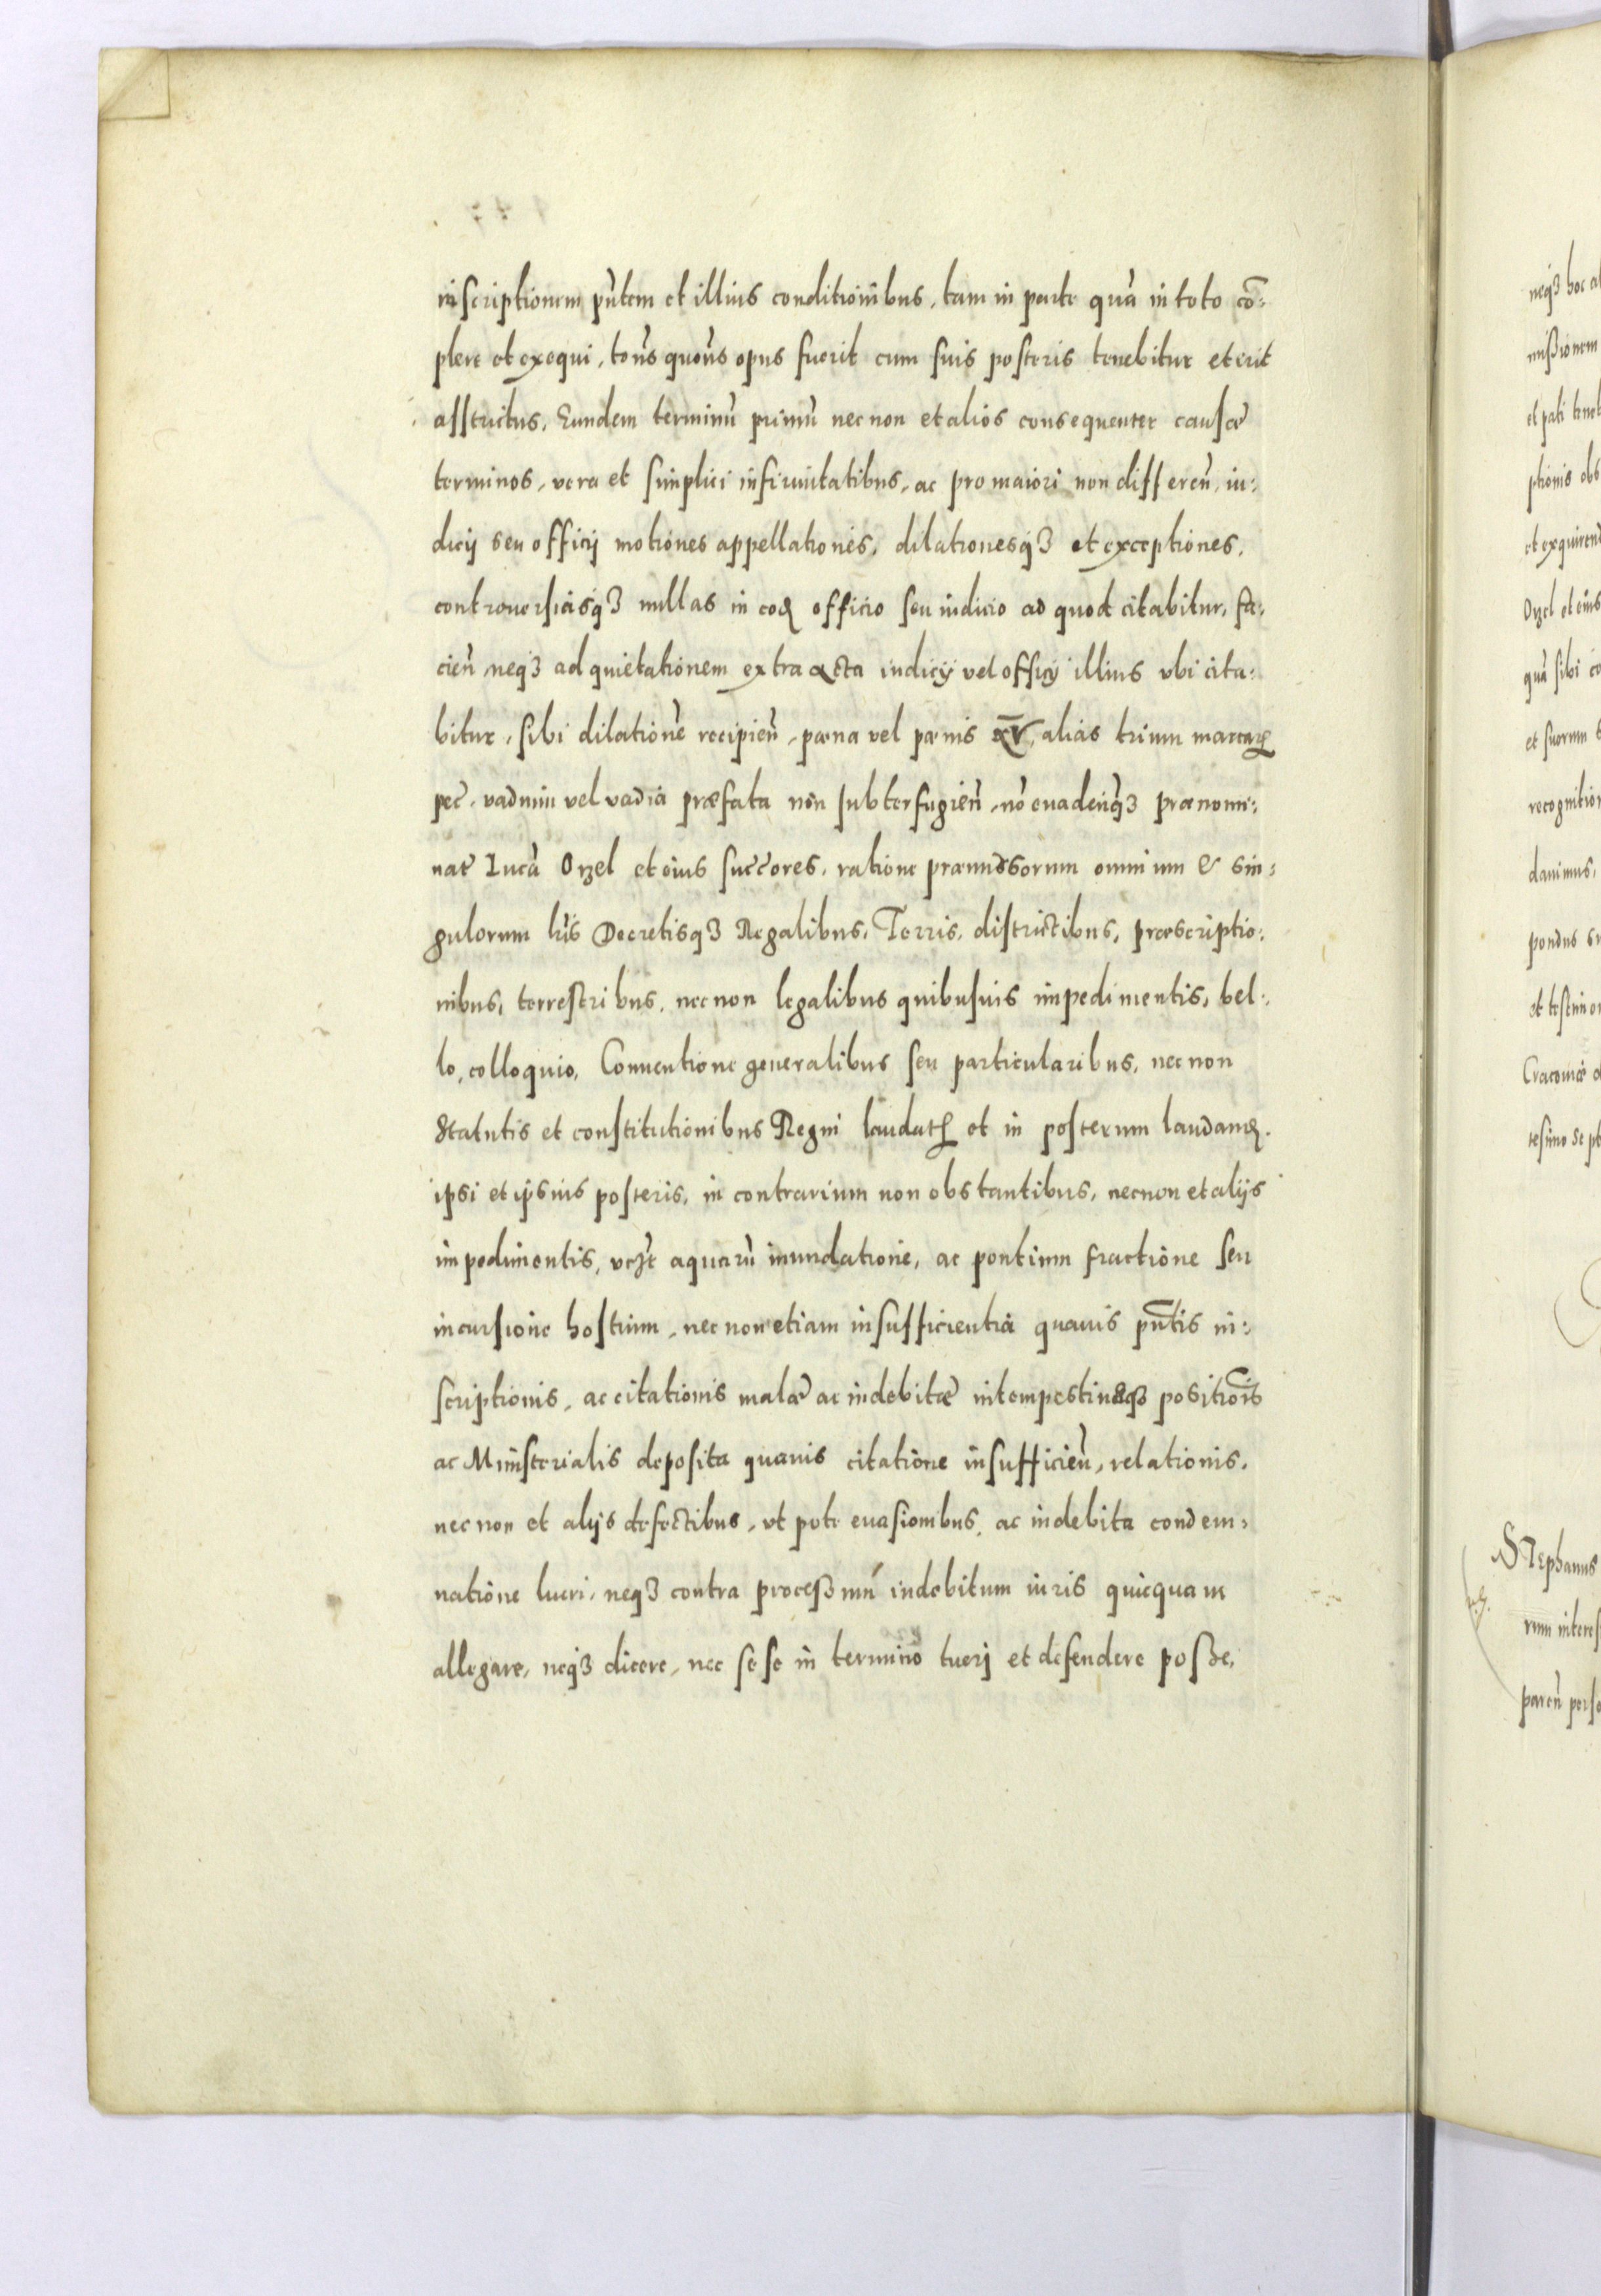 inscriptionem pñtem et illius conditionibus, tam in parte quã in toto cõ:
plere et exequi, toñs quoñs opus fuerit cum suis posteris tenebitur et erit
asstrictus, Eundem terminũ primũ nec non et alios consequenter causæ
terminos, vera et simplici infirmitatibus, ac pro maiori non differeñ, iu:
dicij seu officij motiones appellationes, dilationesqȝ et exceptiones,
controuersiasqȝ nullas in eoꝺ officio seu iudicio ad quod citabitur, fa:
cieñ neqȝ ad quietationem extra acta iudicij vel officij illius vbi cita:
bitur, sibi dilationẽ recipieñ, pæna vel pænis xv, alias trium marcaꝝ
pec̃. vadium vel vadia præfata non subterfugieñ, nõ euadenqȝ prænomi:
nat Lucã Orzel et eius succ̃ores, ratione præmissorum omnium & sin:
gulorum lr̃is Decretisqȝ Regalibus, Terris, districtibus, præscriptio:
nibus, terrestribus, nec non legalibus quibusuis impedimentis, bel:
lo, colloquio, Conuentione generalibus seu particularibus, nec non
Statutis et constitutionibus Regni laudatꝭ et in posterum laudanꝺ.
ipsi et ipsius posteris, in contrarium non obstantibus, necnon et alijs
impedimentis, vcȝt aquarũ inundatione, ac pontium fractione seu
incursione hostium, nec non etiam insufficientia quauis pñtis in:
scriptionis, ac citationis malæ ac indebitæ intempestiuæqȝ positiõis
ac Ministerialis deposita quauis citatione insufficieñ, relationis,
nec non et alijs defectibus, vt pote euasionibus, ac indebita condem:
natione lucri, neqȝ contra proceßum indebitum iuris quicquam
allegare, neqȝ dicere, nec se se in termino tuerj et defendere poße,
neqȝ hoc al
mißionem
et pati teneb
ptionis obs
et exquirend
Orzel et eius
quã sibi co
et suorum
recognition
dauimus,
pondus
et testimon
Cracouiæ
tesimo se pt
Stephanus
rum interes
pareñ perso